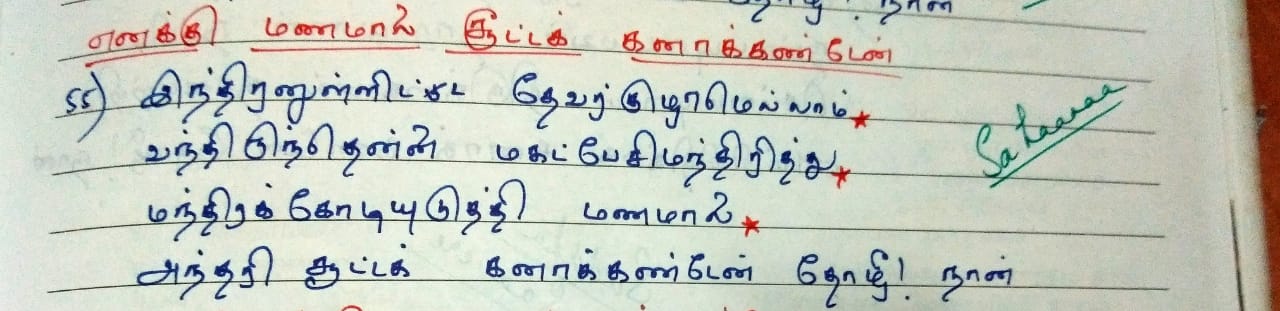 தோழீ! நான்
எனக்கு மணமாலை சூட்டக் கனாக்கண்டேன்
55) இந்திரனுள்ளிட்ட தேவர் குழாமெல்லாம்
வந்திருந்தென்னை மகட்பேசிமந்திரித்து
Sahaanaa
மந்திரக் கோடியுடுத்தி மணமாலை
அந்தரி சூட்டக் கனாக்கண்டேன் தோழீ! நான்